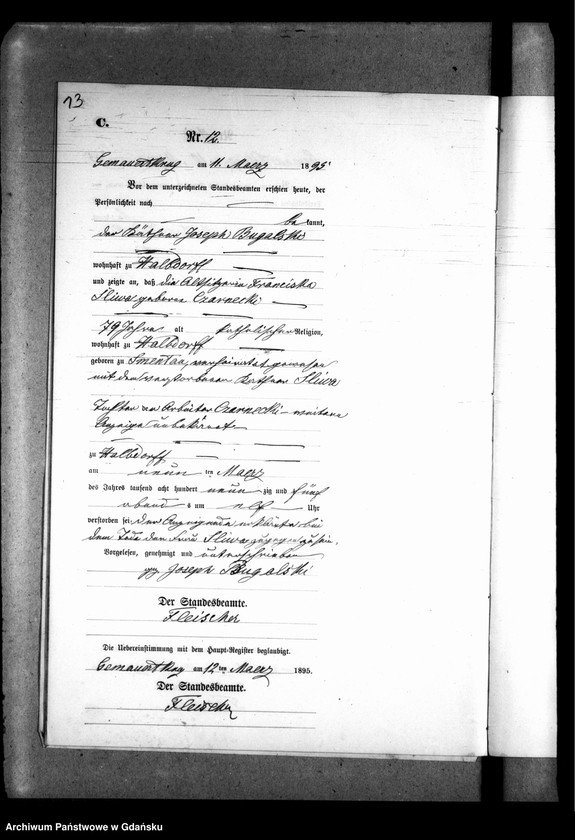 73
C.
Nr. 12.
am 11. Maerz 1895.
Vor dem unterzeichneten Standesbeamten erschien heute, der
Persönlichkeit nach
be kannt,
der Käthner Joseph Bugalski
wohnhaft zu Halbdorff
und zeigte an, daß die Altsitzerin Franciska
Sliwa geborne Czarnecki
79 Jahre alt katholischer Religion,
wohnhaft zu Halbdorff
geboren zu Smentau, verheirathet gewesen
mit dem verstorbenen Käthner Sliwa
Tochter des Arbeiter Czarnecki – weitere
unbekannt
zu Halbdorff
am neun ten Maerz
des Jahres tausend acht hundert neun zig und fünf
abend s um elf Uhr
verstorben sei. Der Anzeigende erklärte bei
dem Tode der Frau Sliwa zugegen zu sein.
Vorgelesen, genehmigt und unterschrieben
gez Joseph Bugalski
Der Standesbeamte.
Fleischer
Die Uebereinstimmung mit dem Haupt-Register beglaubigt.
am 12 ten Maerz 1895.
Der Standesbeamte.
Fleischer
Archiwum Państwowe w Gdańsku